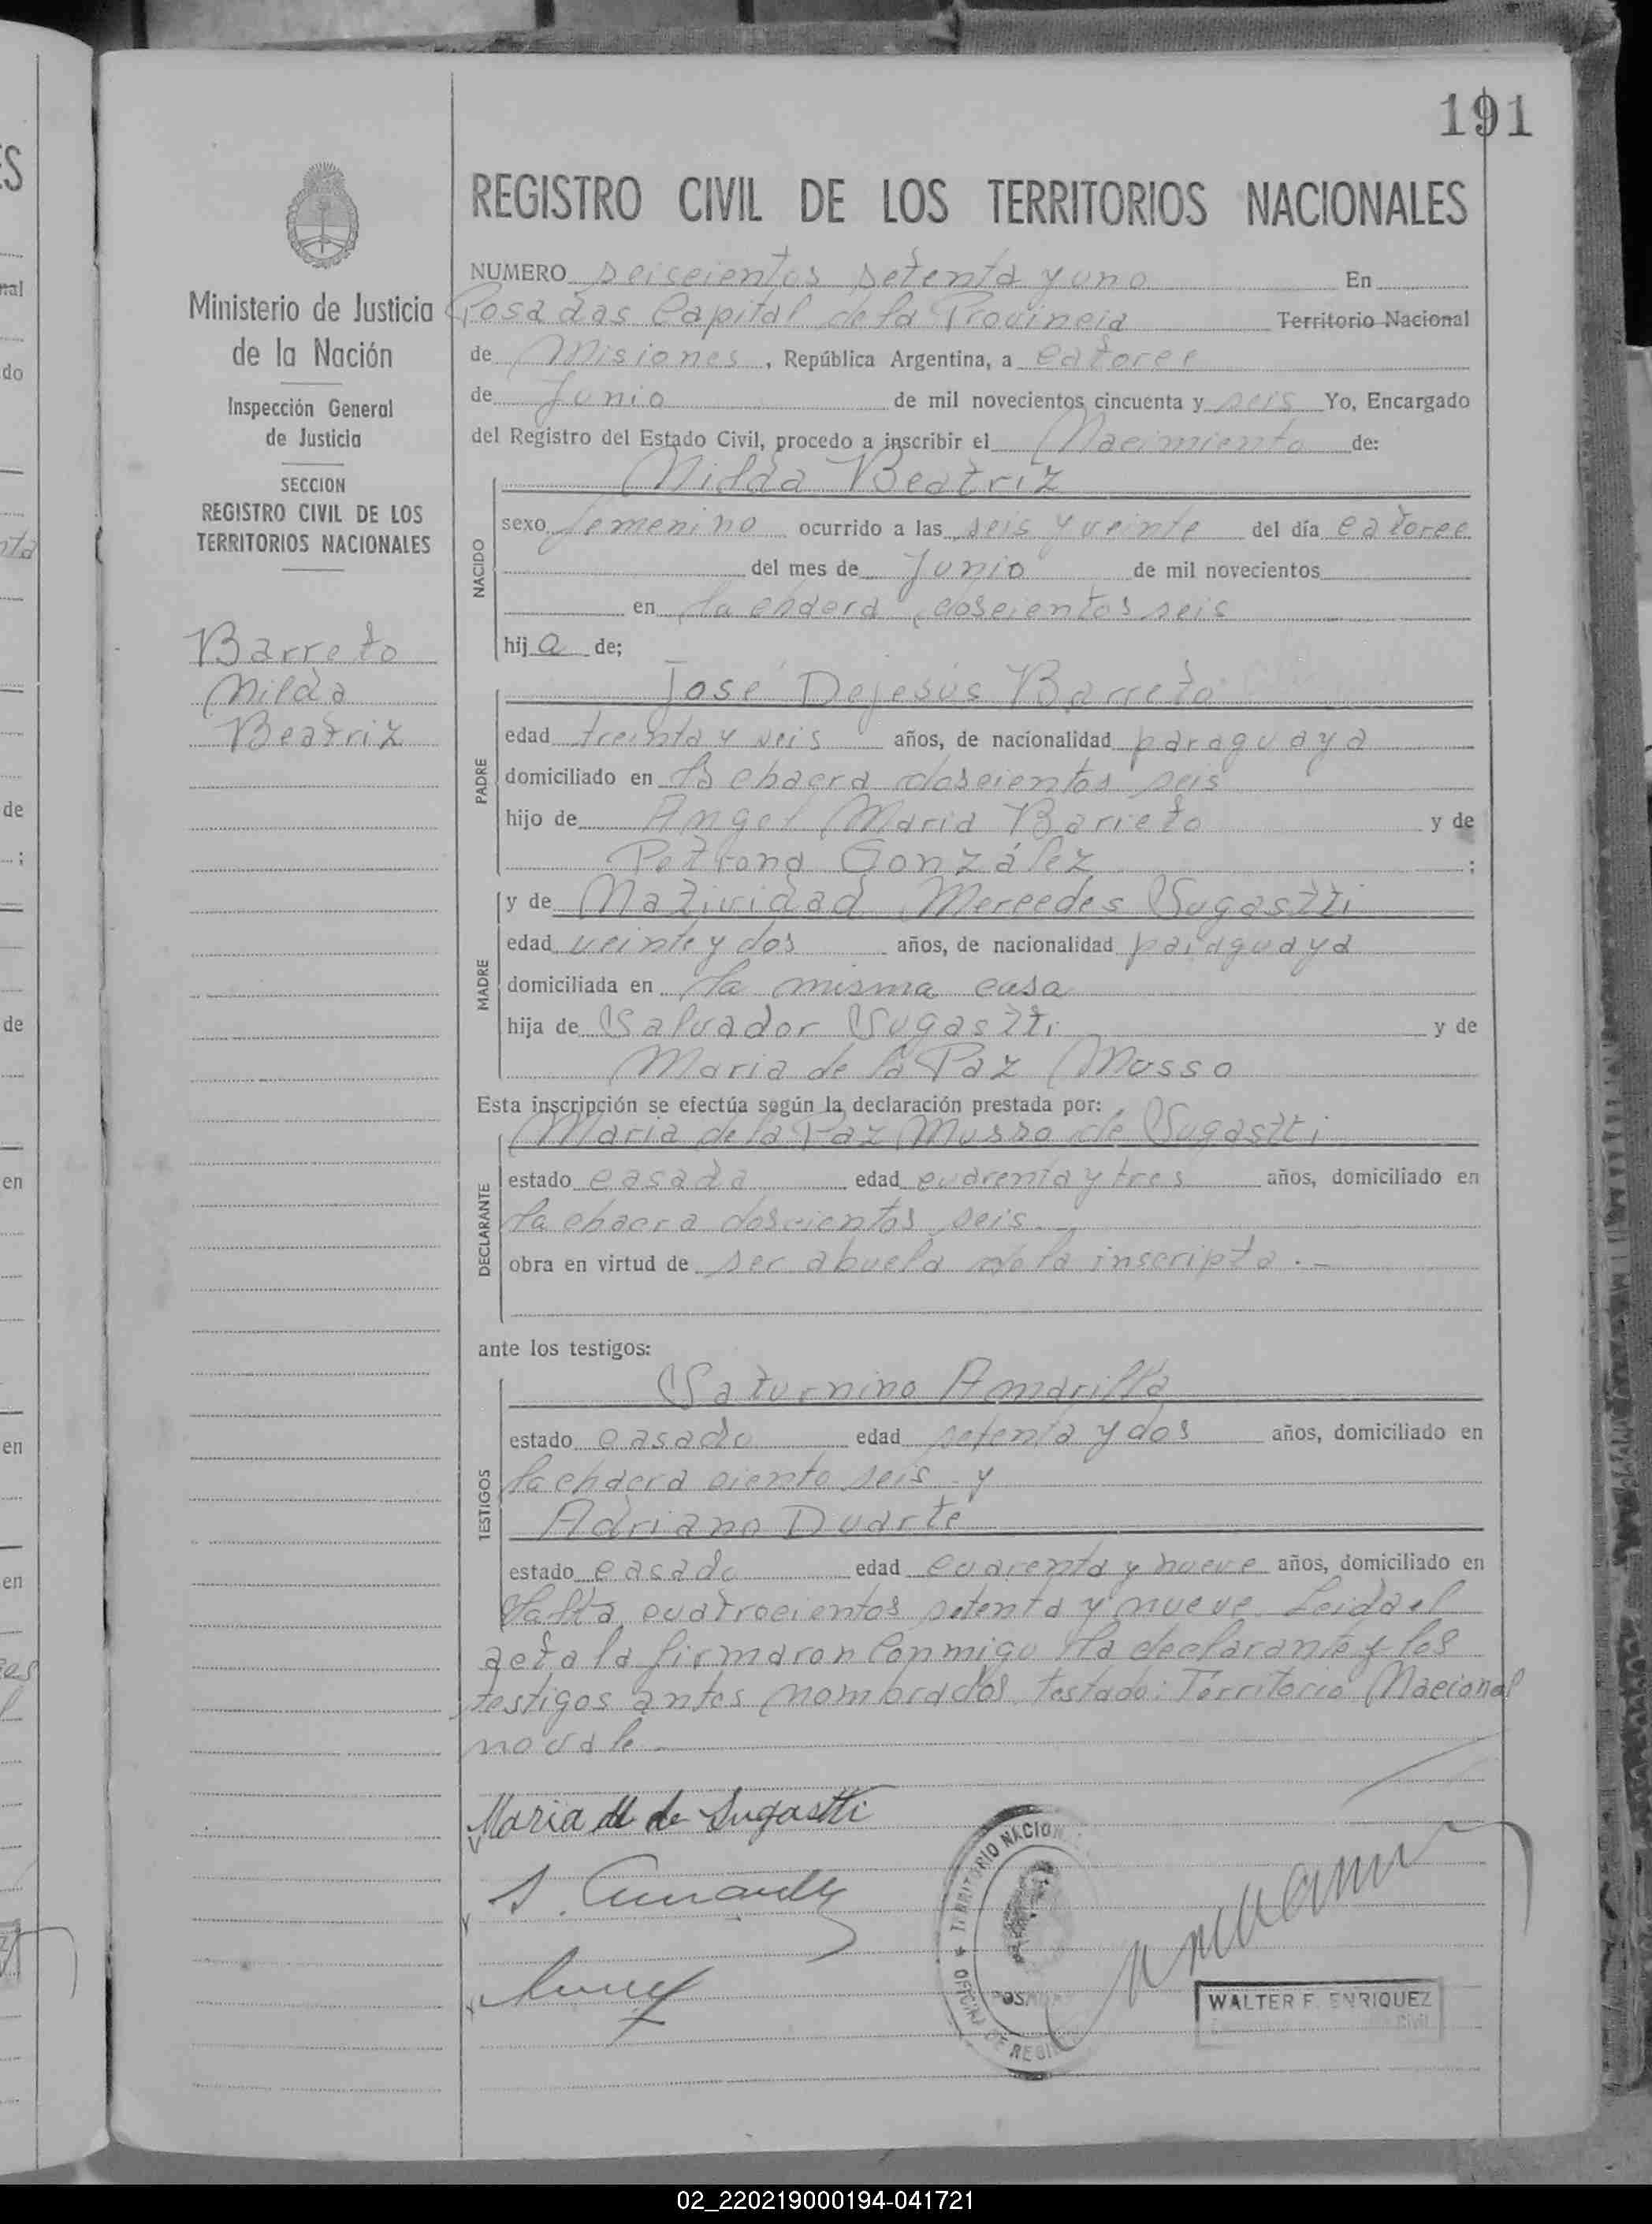 191
REGISTRO CIVIL DE LOS TERRITORIOS NACIONALES
Ministerio de Justicia
de la Nación
Inspección General
de Justicia
SECCION
REGISTRO CIVIL DE LOS
TERRITORIOS NACIONALES
Barreto
Nilda
Beatriz
NUMERO seiscientos setenta y uno En
Posadas Capital de la Provincia Territorio Nacional
de Misiones, República Argentina, a catorce
de Junio de mil novecientos cincuenta y seis Yo, Encargado
del Registro del Estado Civil, procedo a inscribir el Nacimiento de:
NACIDO
Nilda Beatriz
sexo femenino ocurrido a las seis y veinte del día catorce
del mes de Junio de mil novecientos
en la chacra doscientos seis
hija de;
PADRE
José Dejesús Barreto
edad treinta y seis años, de nacionalidad paraguaya
domiciliado en la chacra doscientos seis
hijo de Angel Maria Barreto y de
Petrona González ;
MADRE
y de Natividad Mercedes Sugastti
edad veinte y dos años, de nacionalidad paraguaya
domiciliada en la misma casa
hija de Salvador Sugastti y de
Maria de la Paz Musso
Esta inscripción se efectúa según la declaración prestada por:
DECLARANTE
Maria de la Paz Musso de Sugastti
estado casada edad cuarenta y tres años, domiciliado en
la chacra doscientos seis.-
obra en virtud de ser abuela de la inscripta.-
ante los testigos:
TESTIGOS
Saturnino Amarilla
estado casado edad setenta y dos años, domiciliado en
la chacra ciento seis y
Adriano Duarte
estado casado edad cuarenta y nueve años, domiciliado en
Salta cuatrocientos setenta y nueve. Leida el
acta la firmaron conmigo la declarante y los
testigos antes nombrados. Testado: Territorio Nacional
no vale.
Maria M de Sugastti
TERRITORIO NACION
OFICINA DE REGI
WALTER F. ENRIQUEZ
Civil
02_220219000194-041721